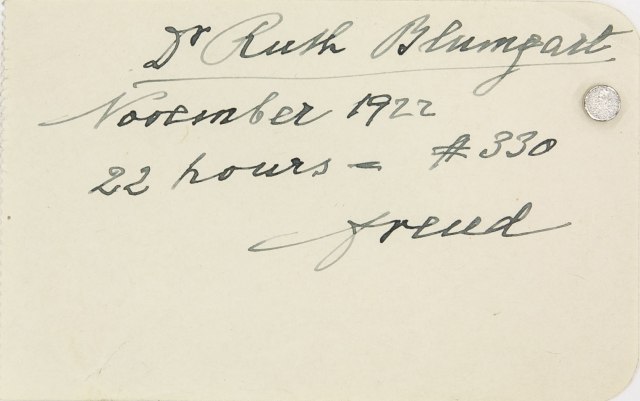 Dr Ruth Blumgart
November 1922
22 hours = $330
Freud